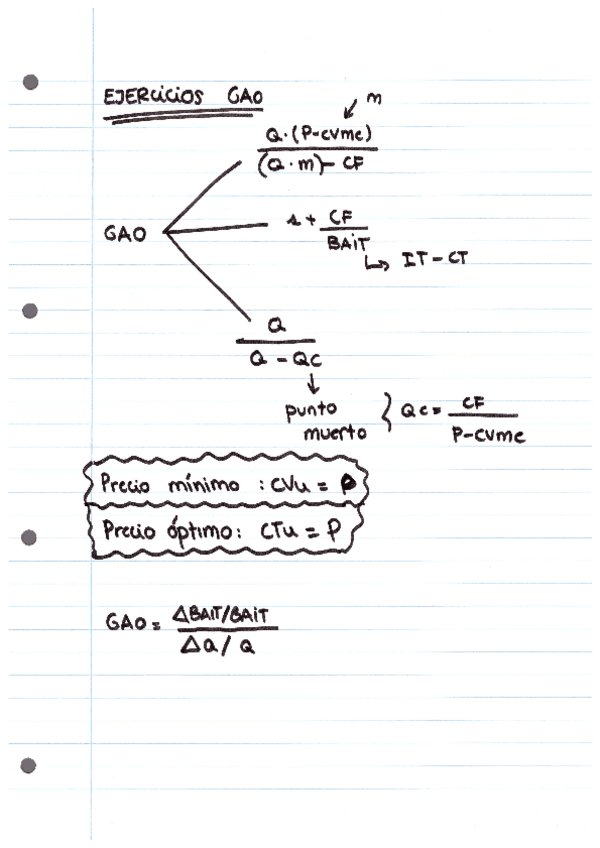 EJERCICIOS GAO
m
Q·(P-CVMe)
(Q·m)-CF
GAO
1 + CF
BAiT
IT-CT
Q
Q - QC
punto
muerto
Qc = CF
P-CVMe
Precio mínimo : CVu = P
Precio óptimo: CTu = P
GAO = ΔBAIT/BAiT
ΔQ/Q